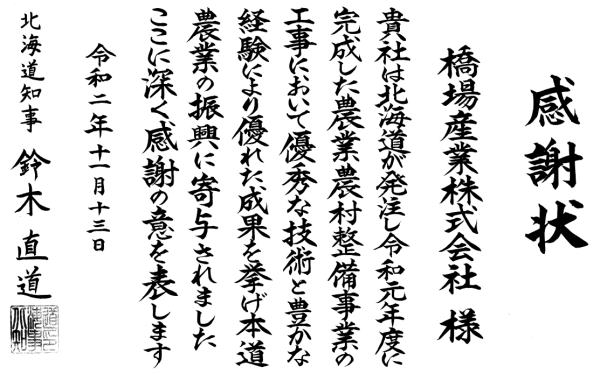 感謝状
橋場産業株式会社 様
貴社は北海道が発注し令和元年度に
完成した農業農村整備事業の
工事において優秀な技術と豊かな
経験により優れた成果を挙げ本道
農業の振興に寄与されました
ここに深く感謝の意を表します
令和二年十一月十三日
北海道知事 鈴木直道